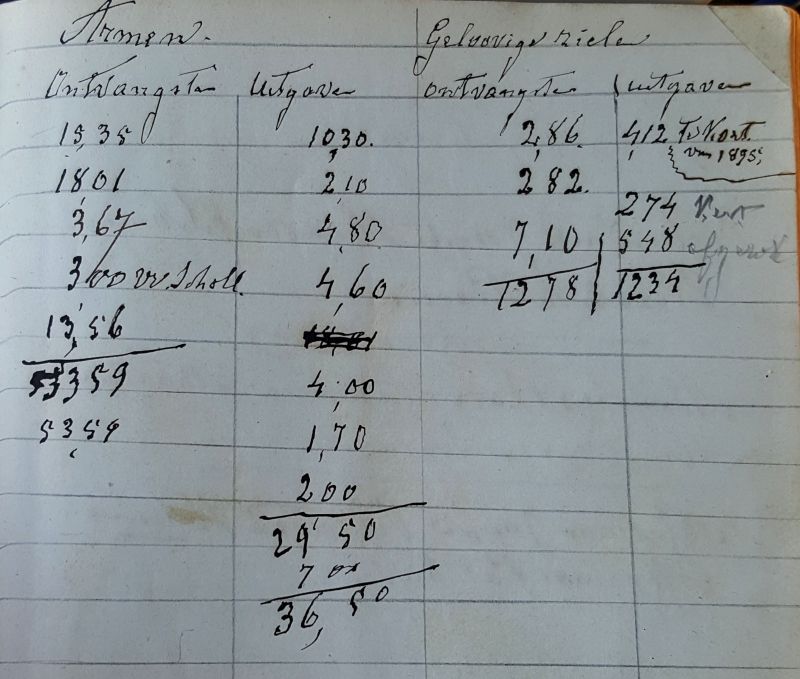 Armen. Geloovige ziele
Ontvangsten Uitgaven ontvangsten uitgaven
15,35 10,30. 2,86. 4,12 Te Kort
van 1895,
18,01 2,10 2 82.
2 74 Kert
3,67 4,80 7,10 5 48
3,00 v Scholl 4,60 12 78 12 34
13,56
53 59 4,00
53,59 1,70
2 00
29 50
7 00
36,50